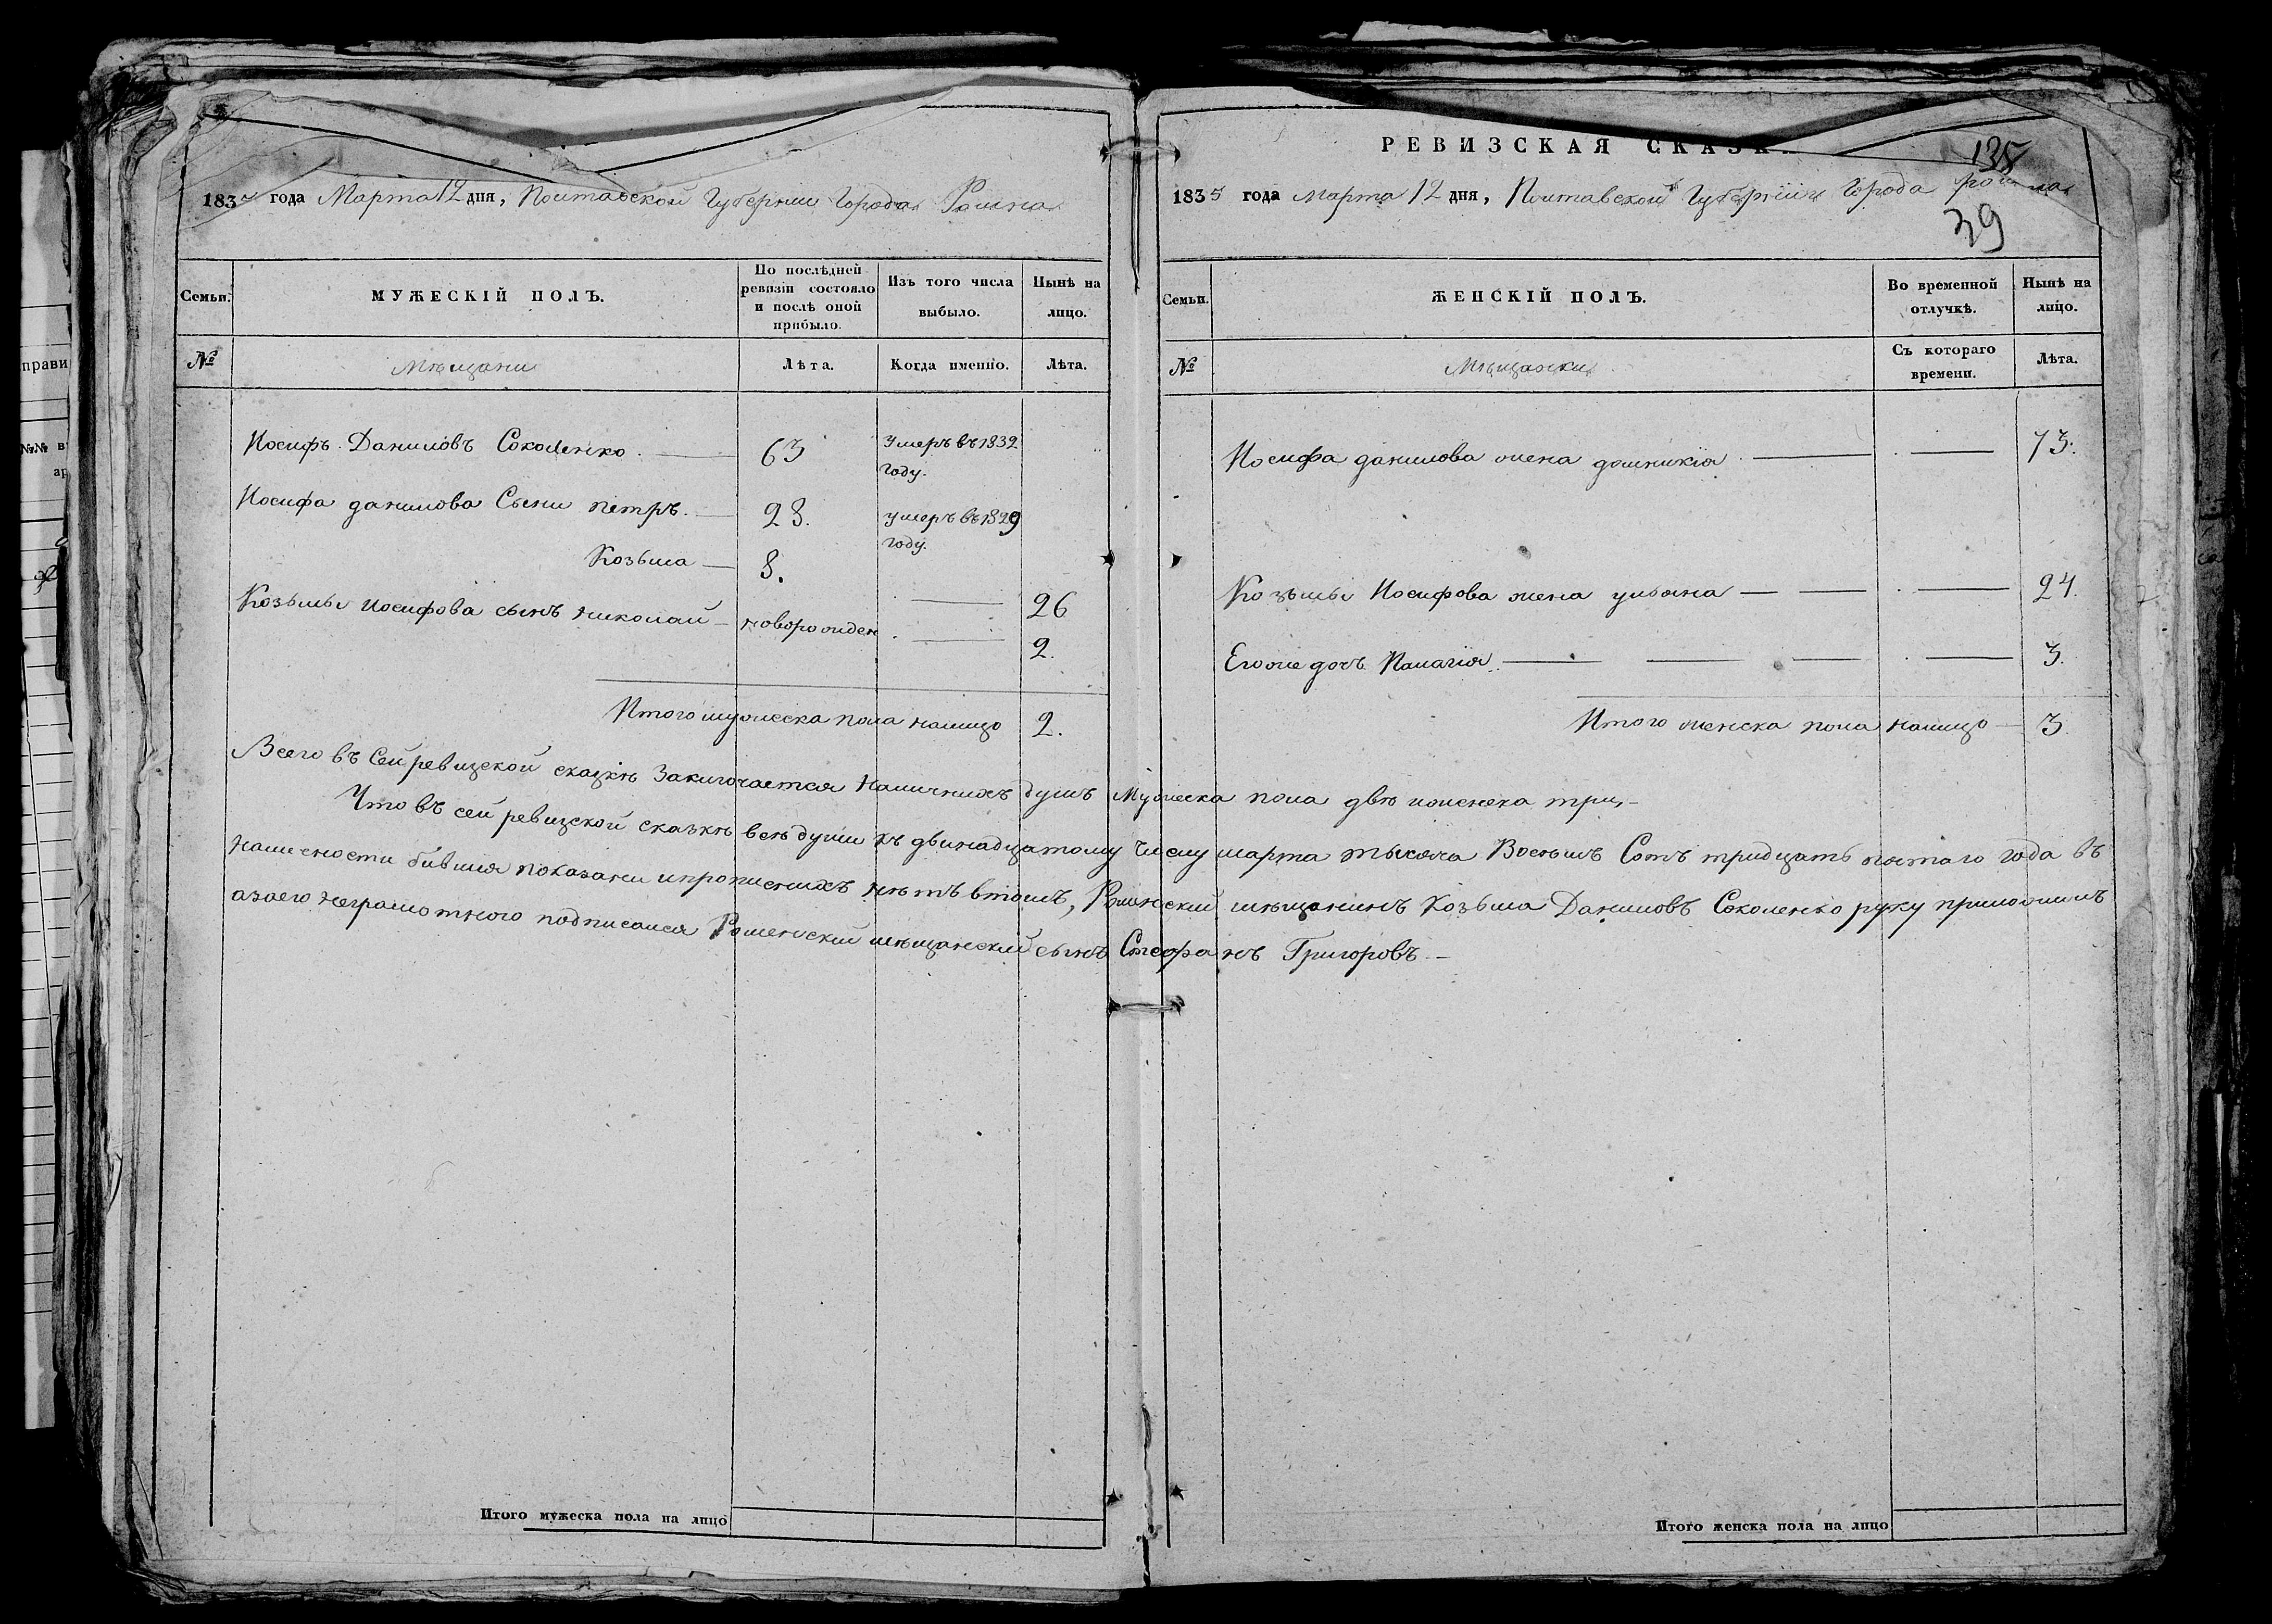 1835 года Марта 12 дня, Полтавской Губернии Города Ромна
Семьи.
МУЖЕСКІЙ ПОЛЪ.
По послѣдней ревизіи состояло и послѣ оной прибыло.
Изъ того числа выбыло.
Нынѣ на лицо.
№
Мѣщани
Лѣта.
Когда именно.
Лѣта.
Иосифъ Даниловъ Соколенко 63 Умеръ въ 1832 году.
Иосифа данилова Сыни петръ. 23. умеръ въ 1829 году.
Козьма 8. 26
Козьмы иосифова сынъ николай новорожден 2.
Итого мужеска пола налицо 2.
Итого мужеска пола на лицо
РЕВИЗСКАЯ СКАЗК
135
1835 года марта 12 дня, Полтавской Губерніи Города ромна
39
Семьи.
ЖЕНСКІЙ ПОЛЪ.
Во временной отлучкѣ.
Нынѣ на лицо.
№
Мѣщански
Съ котораго времени.
Лѣта.
Иосифа данилова жена домникія 73.
Козьмы Иосифова жена улияна 24.
Егоже дочь Палагія 3.
Итого женска пола налицо 3
Всего въ Сей ревизской сказкѣ Заключается наличнихъ душъ Мужеска пола двѣ иженска три,
Что въ сей ревизской сказкѣ всѣ души къ двинадцатому числу марта тысяча Восемъ Сотъ тридцать пятаго года въ
наличности бившия показани ипрописнихъ нѣтъ втомъ, Роменский мѣщанинъ Козьма Даниловъ Соколенко руку приложилъ
азаего неграмотного подписался Роменский мѣщанский сынъ Стефанъ Григоровъ
Итого женска пола на лицо